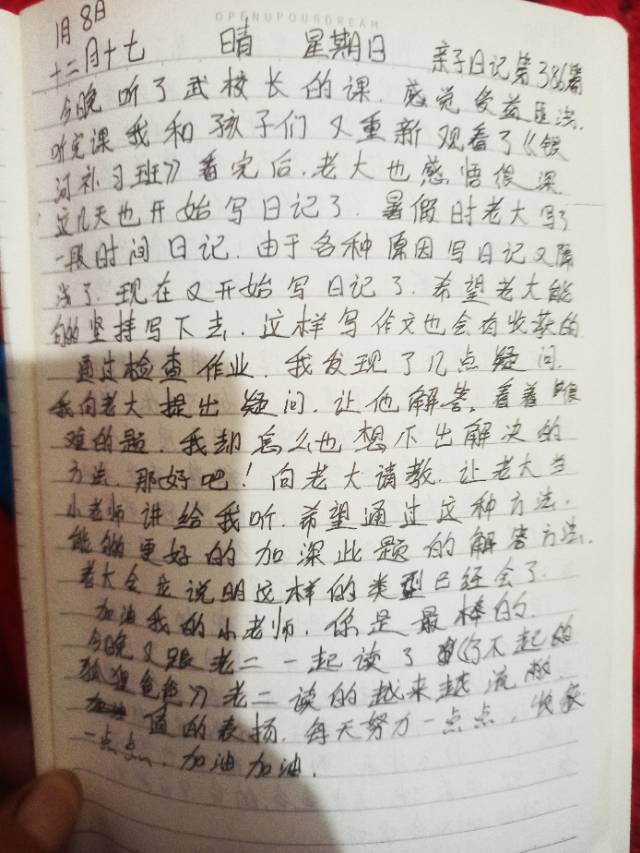 OPENUPOURDREAM
1月8日
十二月十七 晴 星期日 亲子日记第386篇
今晚听了武校长的课.感觉受益匪浅.
听完课我和孩子们又重新观看了《银
河补习班》看完后.老大也感悟很深
这几天也开始写日记了.暑假时老大写了
一段时间日记.由于各种原因写日记又
了.现在又开始写日记了.希望老大能
够的坚持写下去.这样写作文也会有收获的.
通过检查作业.我发现了几点疑问.
我向老大提出疑问.让他解答.看着
难的题.我却怎么也想不出解决的
方法.那好吧!向老大请教.让老大当
小老师讲给我听.希望通过这种方法.
能够更好的加深此题的解答方法.
老大会说明这样的类型已经会了.
加油我的小老师.你是最棒的.
今晚又跟老二一起读了《了不起的
狐狸爸爸》老二读的越来越流利.
值的表扬.每天努力一点点,收获
一点点.加油加油.